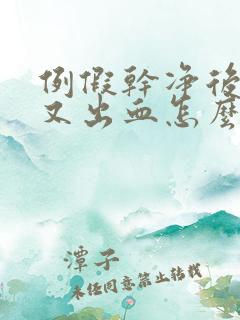 例假幹净後
又出血怎麽
潭子
未经同意禁止转载